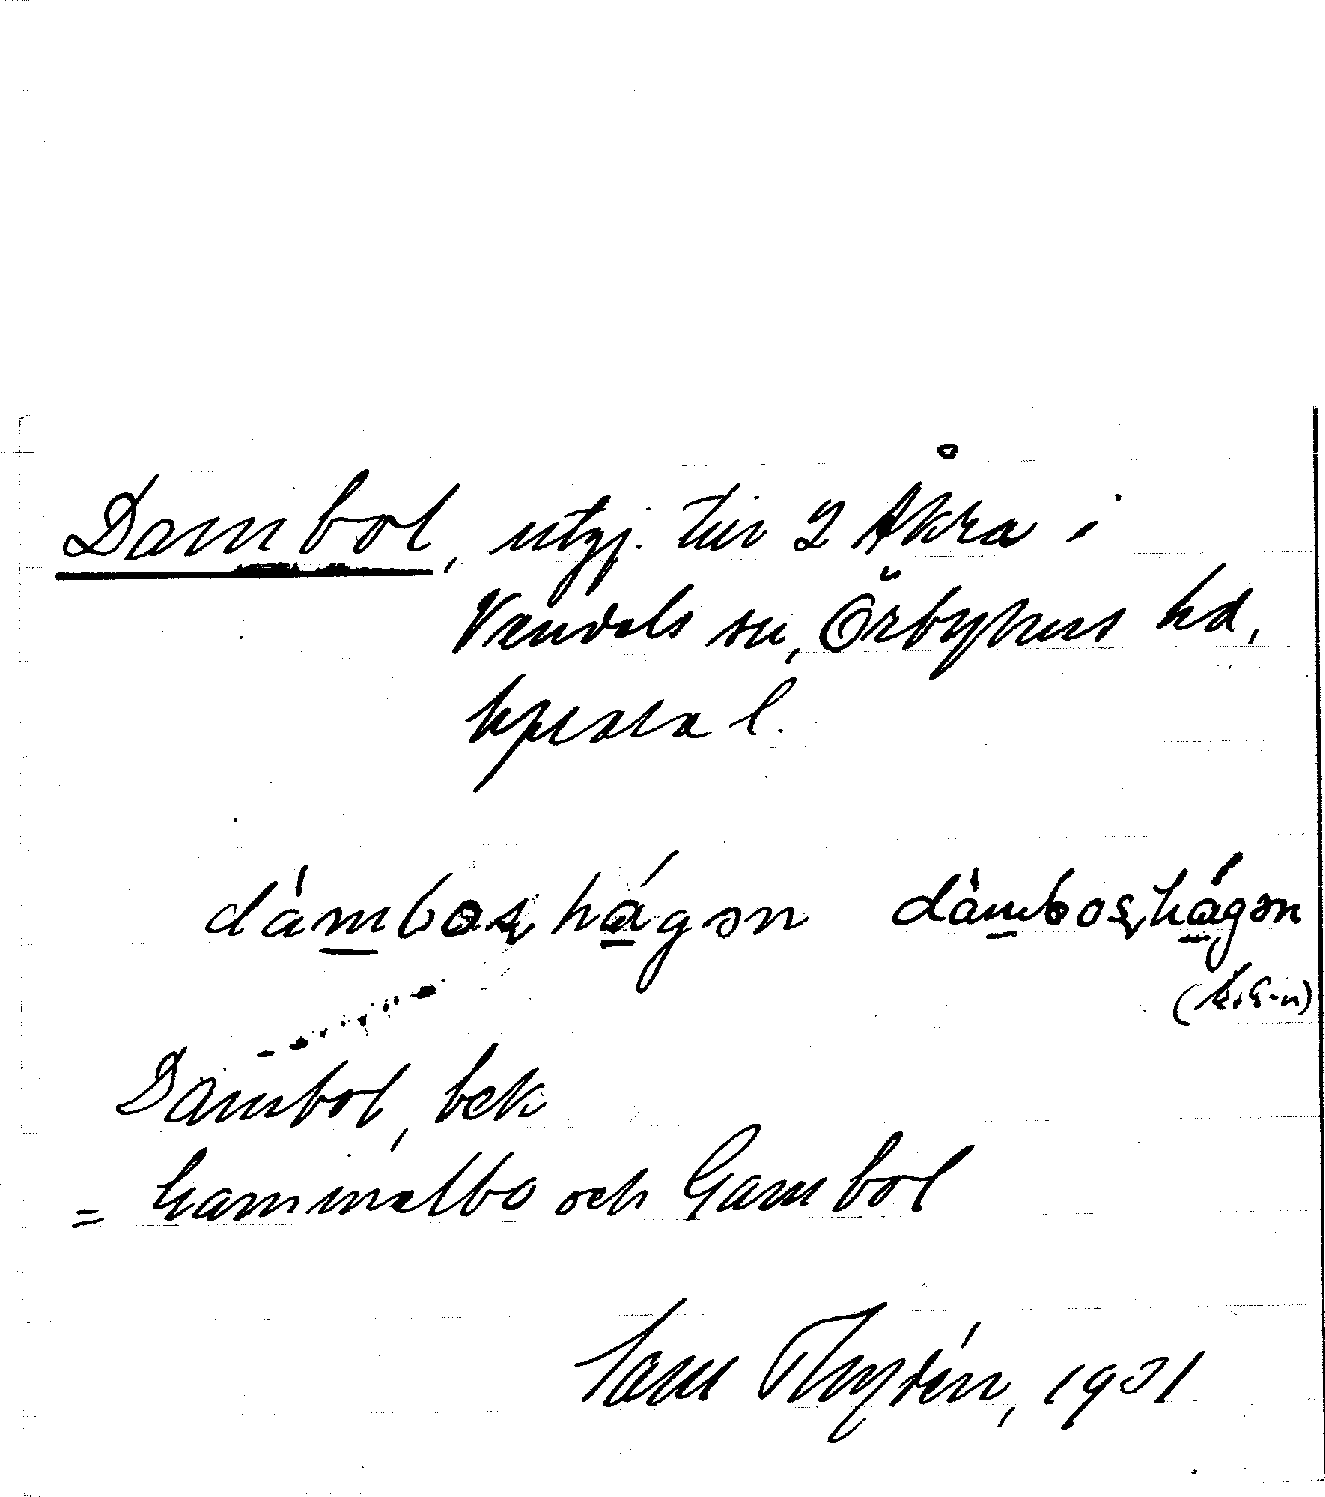 Dambol, utgj. till 2 Åkra i
Vendels sn, Örbyhus hd,
Upsala l.
dàmboshágən dàmboshágən
Dambol, bek
= Gammelbo och Gambol
Sam Thydén, 1931